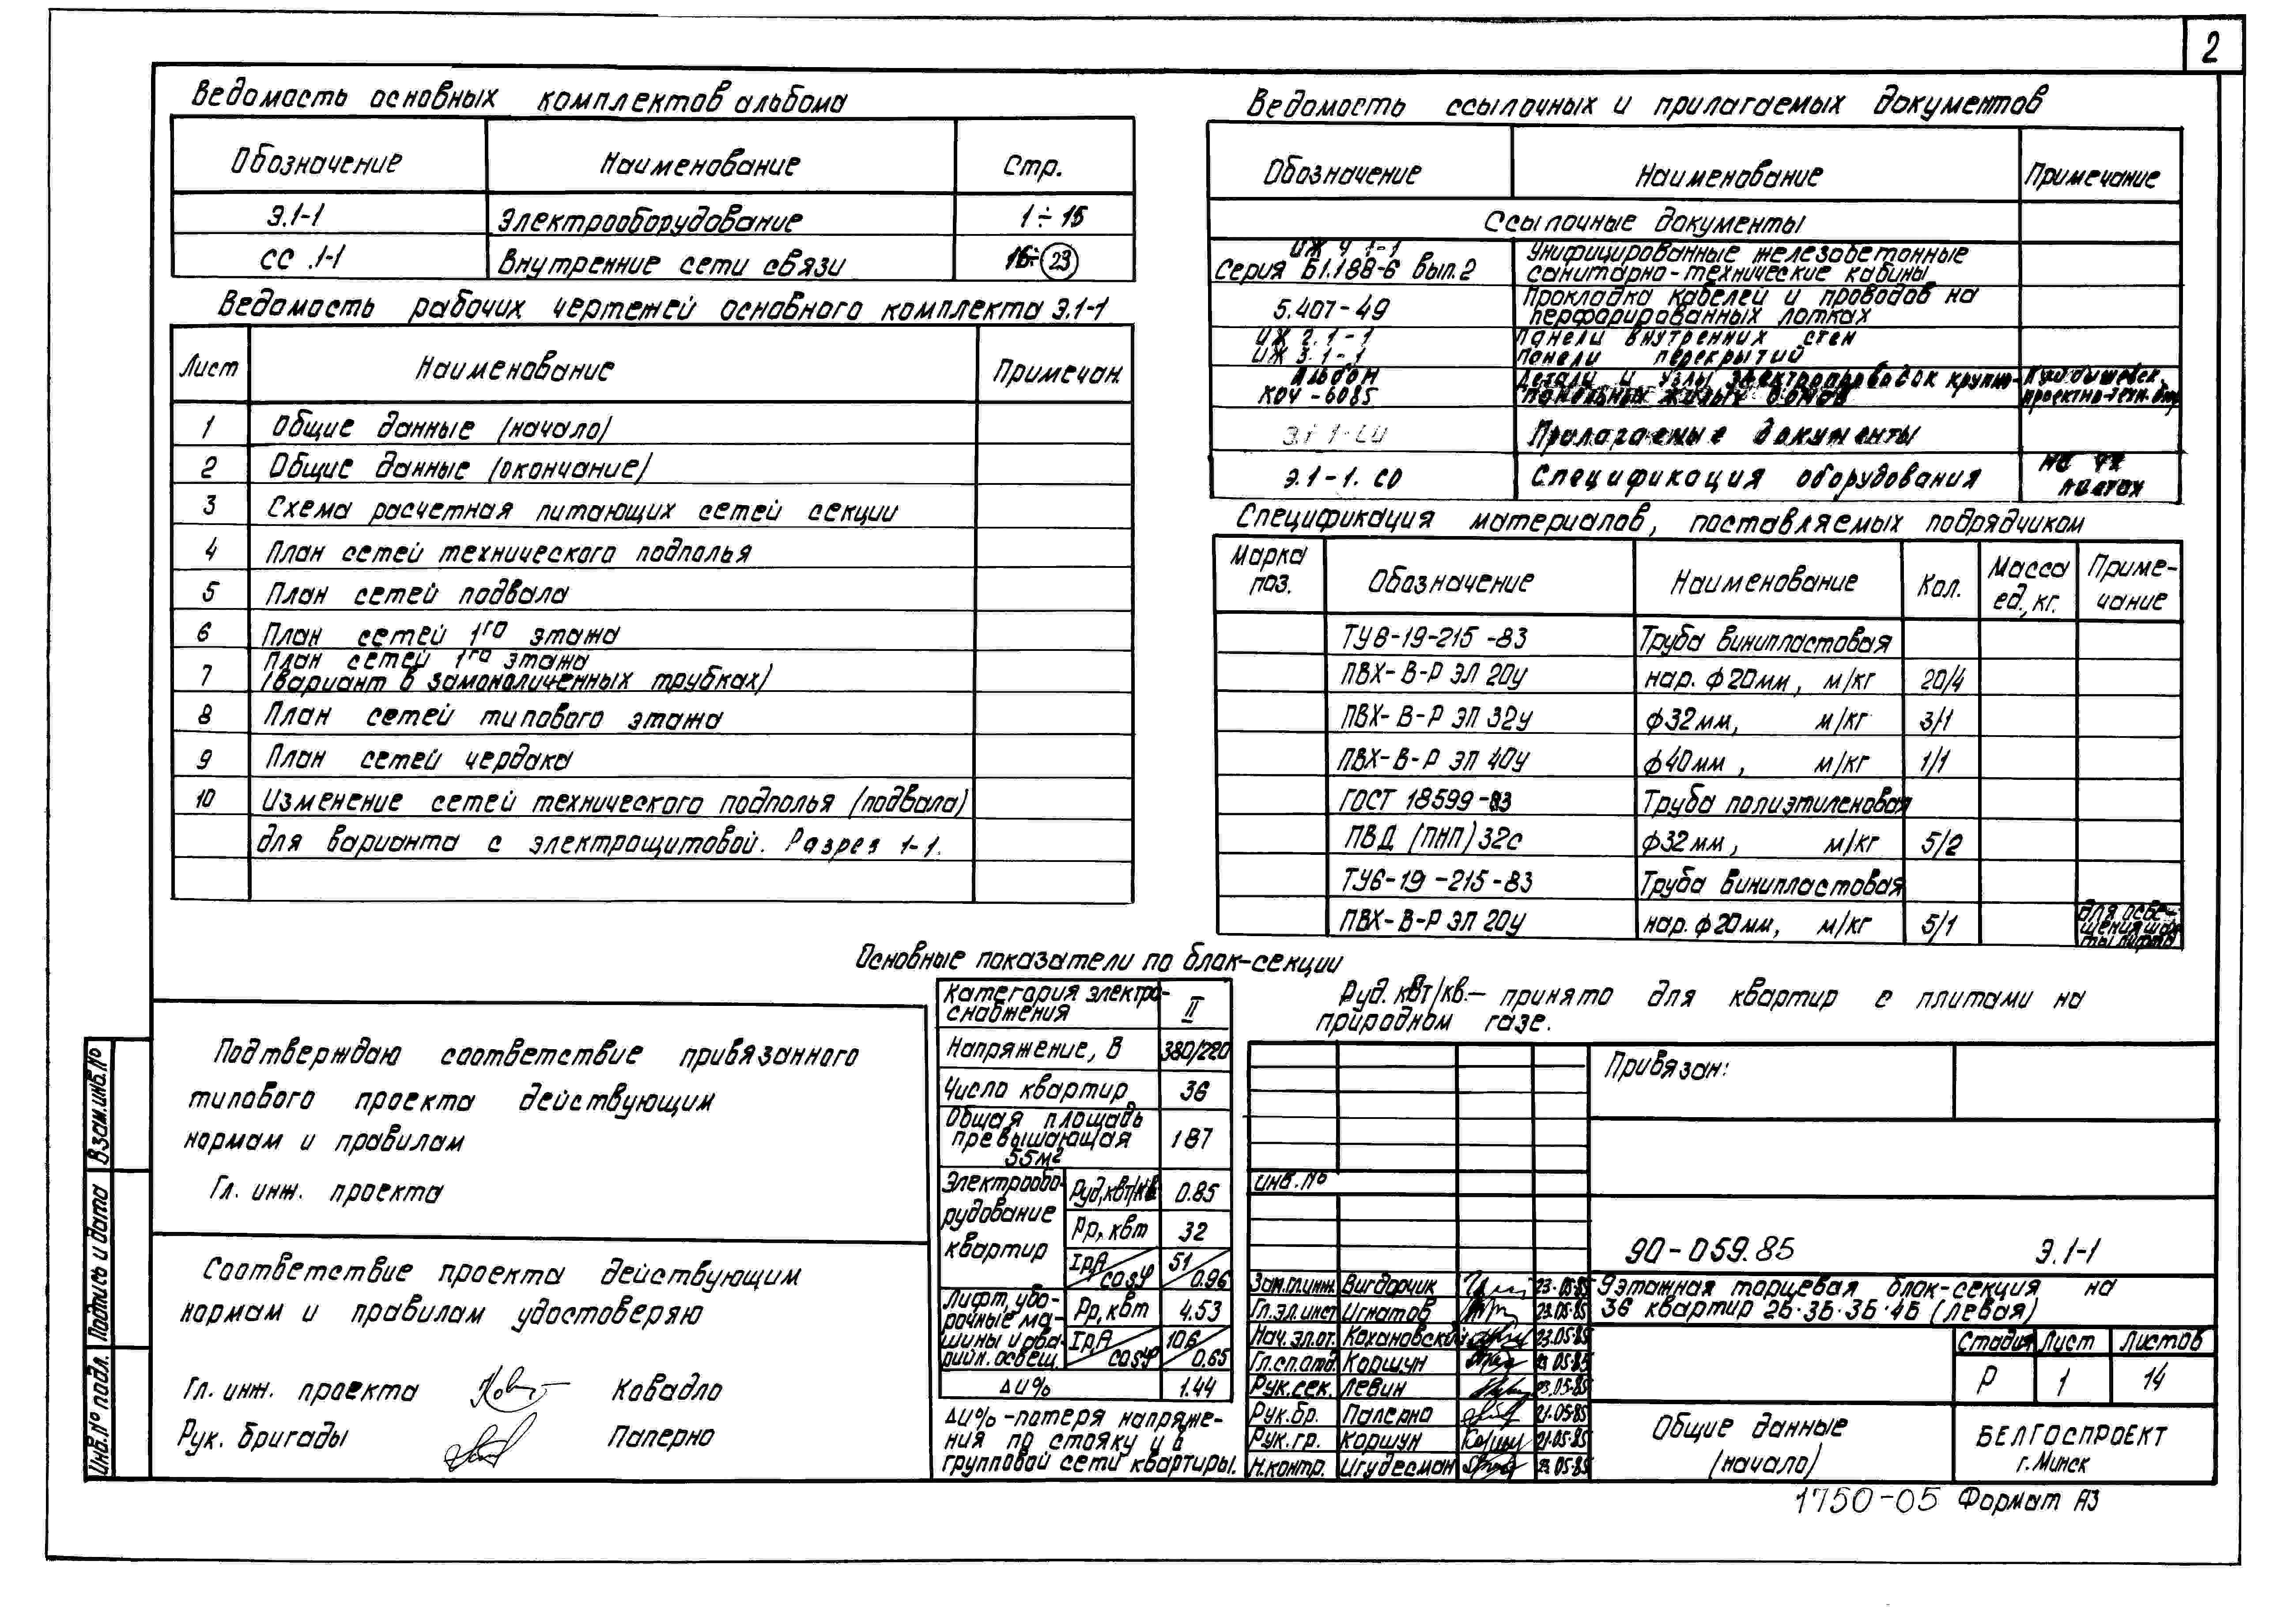 2
Ведомость основных комплектов альбома
Обозначение Наименование Стр.
Э.1-1 Электрооборудование 1÷15
СС .1-1 Внутренние сети связи 16÷23
Ведомость рабочих чертежей основного комплекта Э.1-1
Лист Наименование Примечан.
1 Общие данные (начало)
2 Общие данные (окончание)
3 Схема расчетная питающих сетей секции
4 План сетей технического подполья
5 План сетей подвала
6 План сетей 1го этажа
7 План сетей 1го этажа
(вариант в замоноличенных трубках)
8 План сетей типового этажа
9 План сетей чердака
10 Изменение сетей технического подполья (подвала)
для варианта с электрощитовой. Разрез 1-1.
Ведомость ссылочных и прилагаемых документов
Обозначение Наименование Примечание
Ссылочные документы
ИЖ 4 1-1 Унифицированные железобетонные
Серия Б1.188-6 вып.2 санитарно-технические кабины
5.407-49 Прокладка кабелей и проводов на
перфорированных лотках
ИЖ 2.1-1 Панели внутренних стен
ИЖ 3.1-1 Панели перекрытий
Альбом Детали и узлы электропроводок крупно-
КОЧ-6085 панельных жилых домов проектно-техн.
Прилагаемые документы
Э.1-1. СО Спецификация оборудования на листах
Спецификация материалов, поставляемых подрядчиком
Марка поз. Обозначение Наименование Кол. Масса ед., кг. Приме-чание
ТУ6-19-215-83 Труба винипластовая
ПВХ-В-Р ЭЛ 20У нар. ф20мм, м/кг 20/4
ПВХ-В-Р ЭЛ 32У ф32мм, м/кг 3/1
ПВХ-В-Р ЭЛ 40У ф40мм, м/кг 1/1
ГОСТ 18599-83 Труба полиэтиленовая
ПВД (ПНП) 32с ф32мм, м/кг 5/2
ТУ6-19-215-83 Труба винипластовая
ПВХ-В-Р ЭЛ 20У нар. ф20мм, м/кг 5/1 для осве-щения шах-ты лифта
Основные показатели по блок-секции
Категория электро-
снабжения II
Напряжение, В 380/220
Число квартир 36
Общая площадь
превышающая 187
55м2
Электрообо-рудование квартир
Руд,квт/кв 0.85
Рр, квт 32
Iр,А/cosφ 51/0.96
Лифт, убо-рочные ма-шины и ава-рийн. освещ.
Рр, квт 4.53
Iр,А/cosφ 10.6/0.65
Δu% 1.44
Δu% - потеря напряже-
ния по стояку и в
групповой сети квартиры.
Руд. квт/кв. – принято для квартир с плитами на
природном газе.
Подтверждаю соответствие привязанного
типового проекта действующим
нормам и правилам
Гл. инж. проекта
Соответствие проекта действующим
нормам и правилам удостоверяю
Гл. инж. проекта Ковадло
Рук. бригады Паперно
Взам.инв.№
Подпись и дата
Инв.№ подл.
Привязан:
инв.№
90-059.85 Э.1-1
Зам.гл.инж. Вигдорчик 23.05.85
Гл.эл.инст Игнатов 23.05.85
Нач.эл.от. Кохановский 23.05.85
Гл.сп.отд. Коршун 21.05.85
Рук.сек. Левин 23.05.85
Рук.бр. Паперно 21.05.85
Рук.гр. Коршун 21.05.85
Н.контр. Игудесман 21.05.85
9этажная торцевая блок-секция на
36 квартир 2Б·3Б·3Б·4Б (левая)
Стадия Лист Листов
Р 1 14
Общие данные
(начало)
БЕЛГОСПРОЕКТ
г. Минск
1750-05 Формат А3